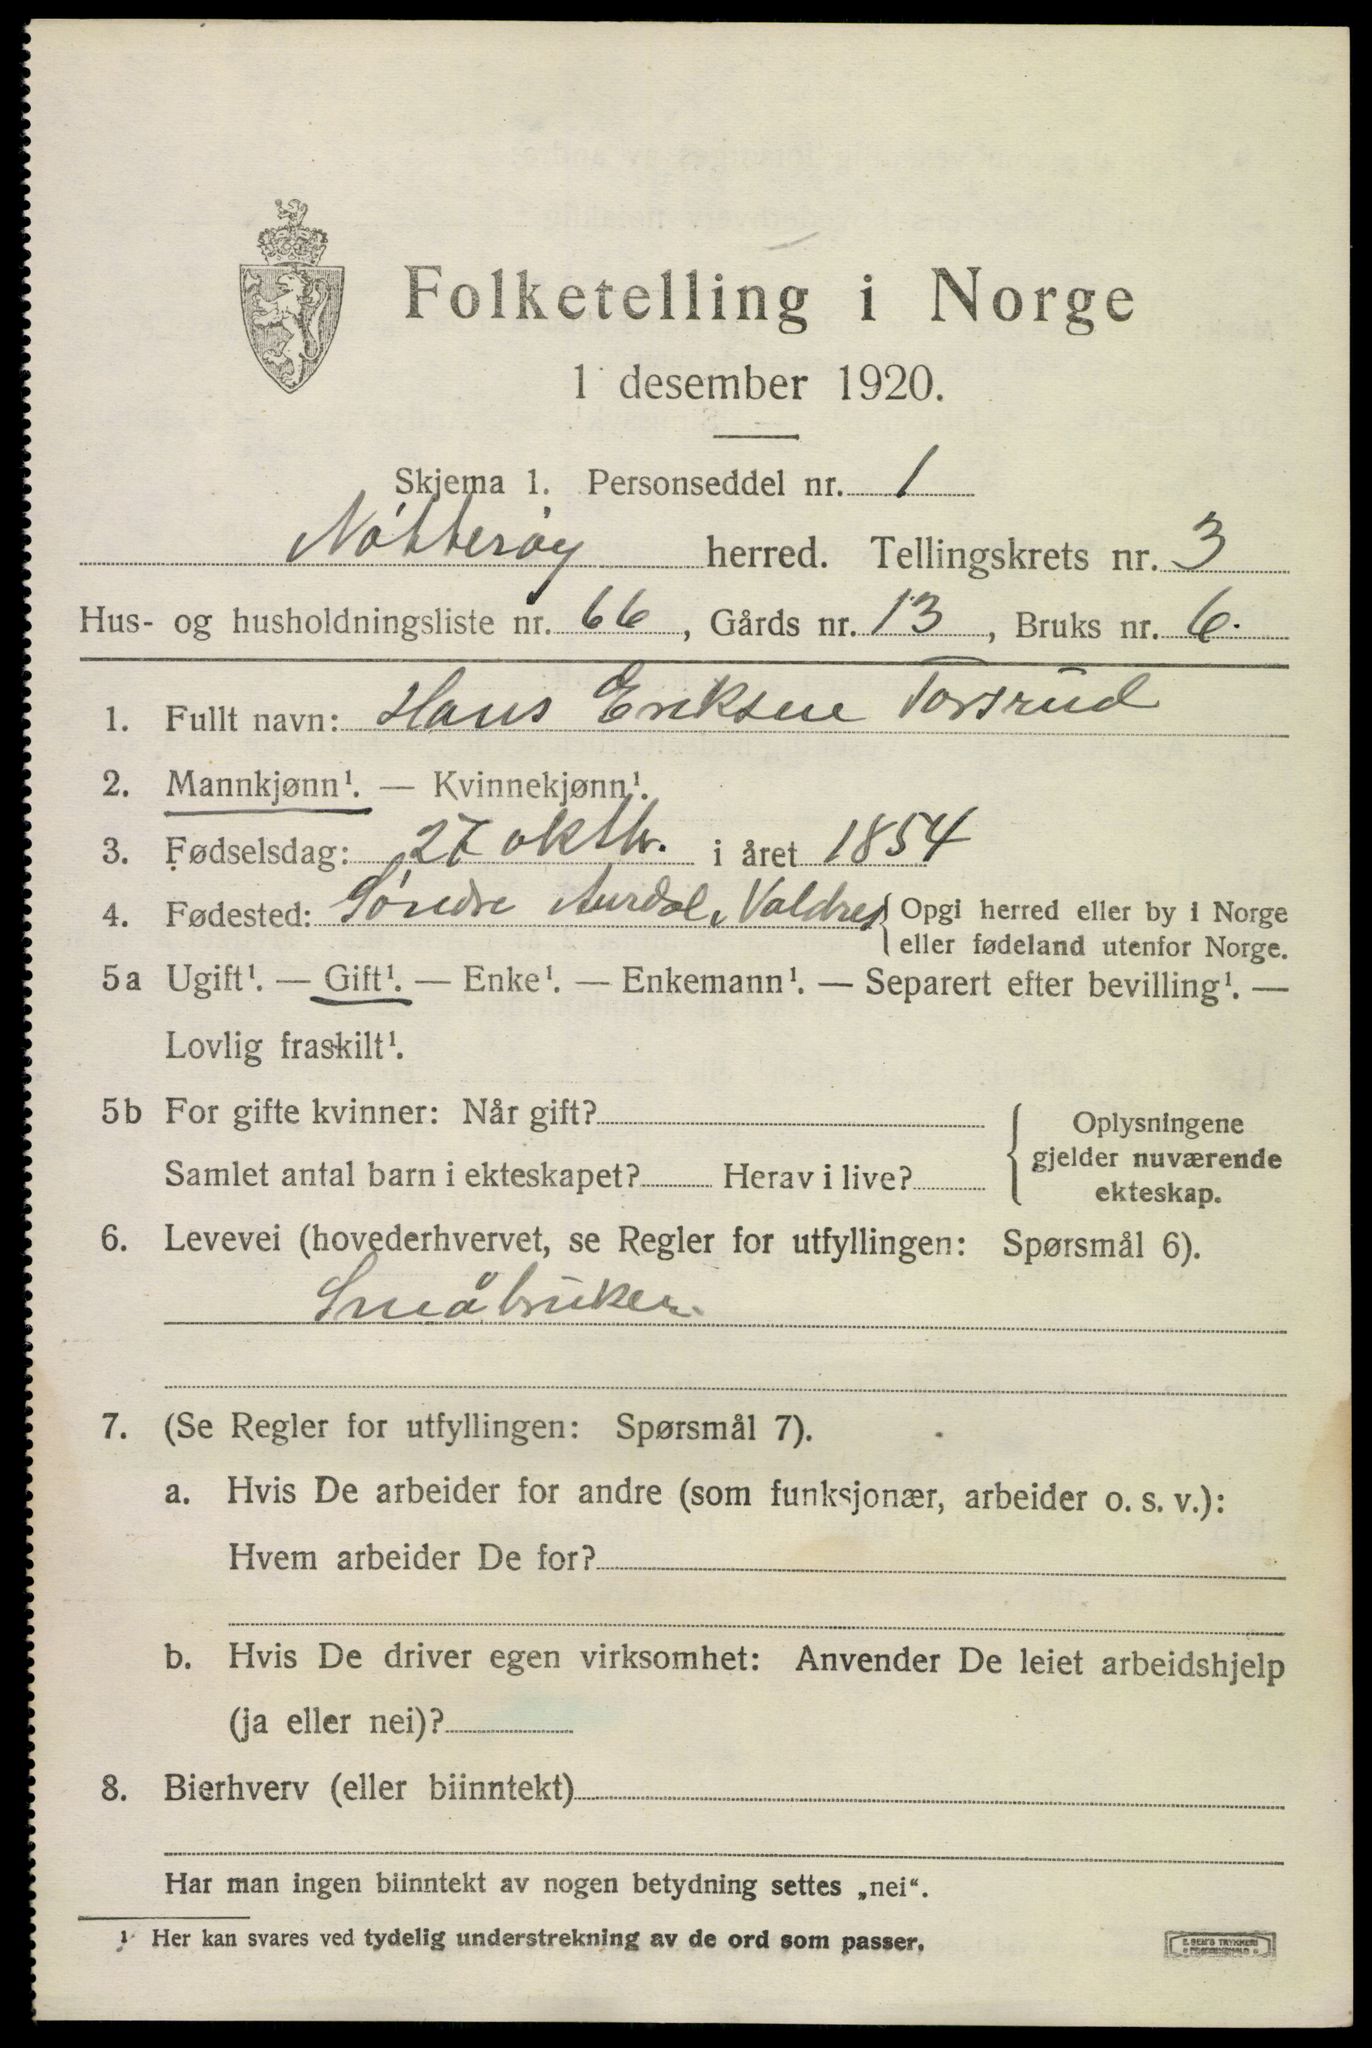 Folketelling i Norge
1 desember 1920.
Skjema 1. Personseddel nr. 1
Nøtterøy herred. Tellingskrets nr. 3
Hus- og husholdningsliste nr. 66, Gårds nr. 13, Bruks nr. 6.
1. Fullt navn: Hans Eriksen Torsrud
2. Mannkjønn¹. — Kvinnekjønn¹.
3. Fødselsdag: 27 oktbr. i året 1854
4. Fødested: Søndre Aurdal, Valdres { Opgi herred eller by i Norge
eller fødeland utenfor Norge.
5a Ugift¹. — Gift¹. — Enke¹. — Enkemann¹. — Separert efter bevilling¹. —
Lovlig fraskilt¹.
5b For gifte kvinner: Når gift?
Samlet antal barn i ekteskapet? Herav i live?
{ Oplysningene
gjelder nuværende
ekteskap.
6. Levevei (hovederhvervet, se Regler for utfyllingen: Spørsmål 6).
Småbruker.
7. (Se Regler for utfyllingen: Spørsmål 7).
a. Hvis De arbeider for andre (som funksjonær, arbeider o. s. v.):
Hvem arbeider De for?
b. Hvis De driver egen virksomhet: Anvender De leiet arbeidshjelp
(ja eller nei)?
8. Bierhverv (eller biinntekt)
Har man ingen biinntekt av nogen betydning settes „nei“.
¹ Her kan svares ved tydelig understrekning av de ord som passer.